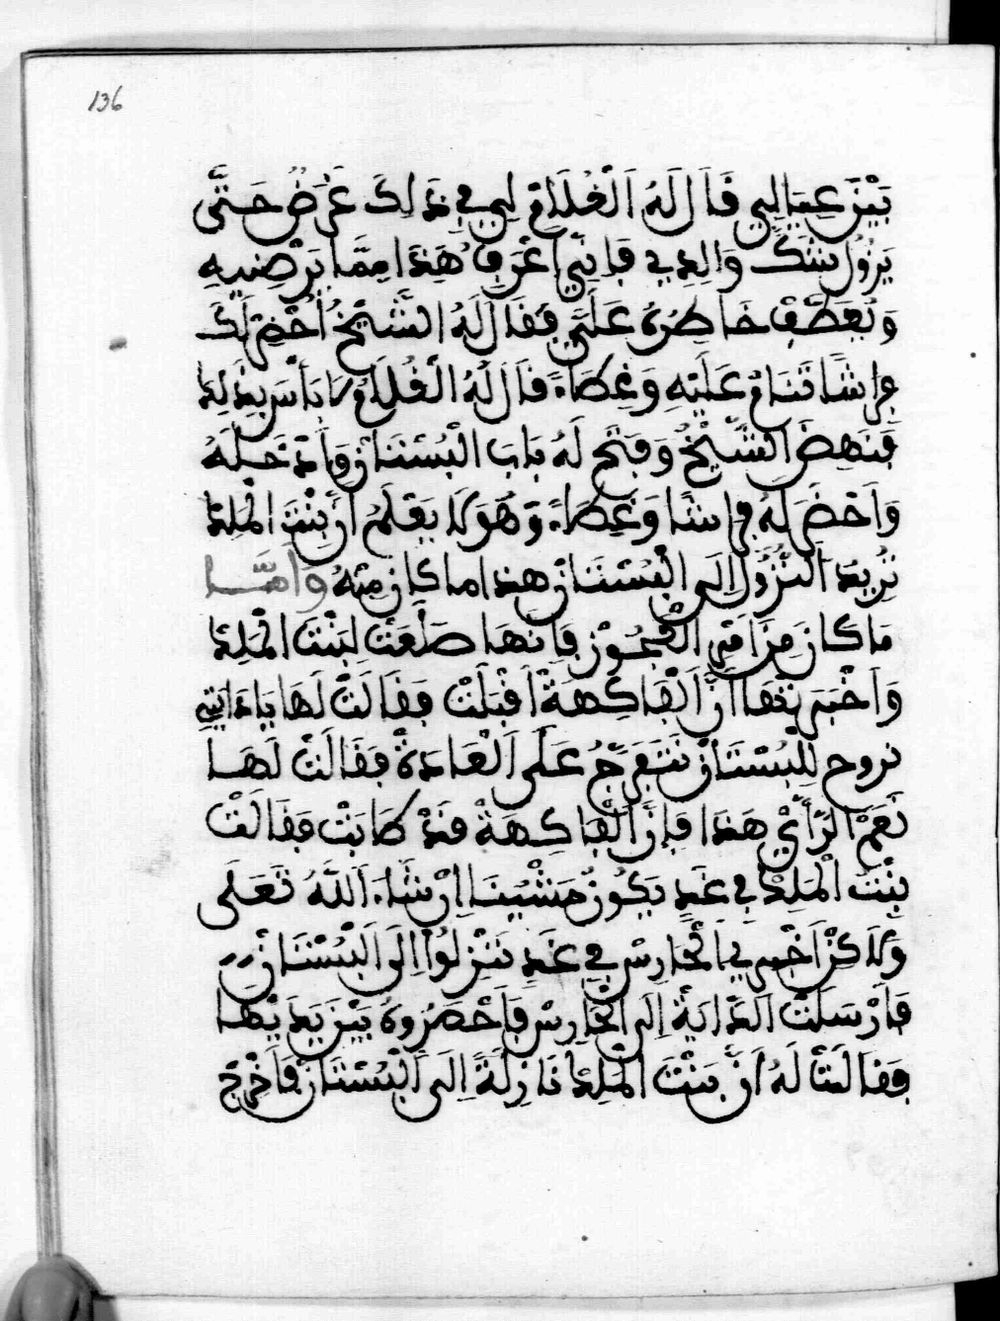 136
بَيْنَ عِيَالِي قَالَ لَهُ الْغُلَامُ لِي فِي ذَلِكَ غَرَضٌ حَتَّى
يَزُولَ شَكُّ وَالِدِي فَإِنِّي أَعْرِفُ هَذَا مِمَّا يُرْضِيهِ
وَيُعَطِّفُ خَاطِرَهُ عَلَيَّ فَقَالَ لَهُ الشَّيْخُ أُحْضِرُ لَكَ
فِرَاشًا تَنَامُ عَلَيْهِ وَغِطَاءً قَالَ لَهُ الْغُلَامُ لَا بَأْسَ بِذَلِكَ
فَنَهَضَ الشَّيْخُ وَفَتَحَ لَهُ بَابَ الْبُسْتَانِ وَأَدْخَلَهُ
وَأَحْضَرَ لَهُ فِرَاشًا وَغِطَاءً وَهُوَ لَا يَعْلَمُ أَنَّ بِنْتَ الْمَلِكِ
تُرِيدُ النُّزُولَ إِلَى الْبُسْتَانِ هذا ما كان مِنْهُ وَأَمَّا
مَا كَانَ مِنْ أَمْرِ الْعَجُوزِ فَإِنَّهَا طَلَعَتْ لِبِنْتِ الْمَلِكِ
وَأَخْبَرَتْهَا أَنَّ الْفَاكِهَةَ أَقْبَلَتْ فَقَالَتْ لَهَا يَا دَايَتِي
نروح لِلْبُسْتَانِ نَتَفَرَّجُ عَلَى الْعَادَةِ فَقَالَتْ لَهَا
نَعَمْ الرَّأْيُ هَذَا فَإِنَّ الْفَاكِهَةَ قَدْ طَابَتْ فَقَالَتْ
بِنْتُ الْمَلِكِ فِي غَدٍ يَكُونُ مَشْيُنَا إِنْ شَاءَ اللَّهُ تَعَلَى
وَلَاكِنْ أَخْبِرِي الْحَارِسَ فِي غَدٍ نَنْزِلُوا إِلَى الْبُسْتَانِ
فَأَرْسَلَتْ الدَّايَةُ إِلَى الْحَارِسِ فَأَحْضَرُوهُ بَيْنَ يَدَيْهَا
فَقَالَتْ لَهُ أَنَّ بِنْتَ الْمَلِكِ نَازِلَةٌ إِلَى الْبُسْتَانِ فَأَخْرِجْ